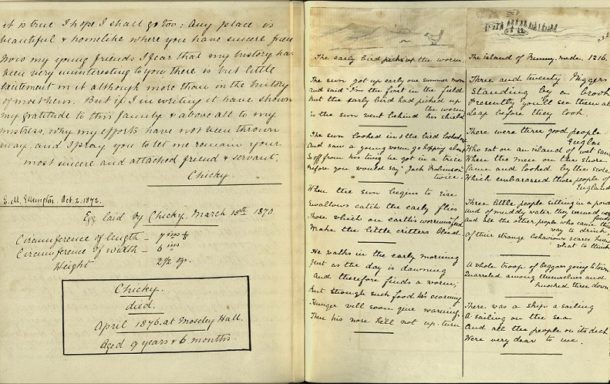 it is true I hope I shall go too. Any place is
beautiful & homelike where you have sincere friends
Now my young friends I fear that my history has
been very uninteresting to you there is but little
excitement in it although more than in the history
of most hens. But if in writing it have shown
my gratitude to this family & above all to my
mistress, why my efforts have not been thrown
away, and I pray you to let me remain your
most sincere and attached friend & servant,
Chicky.
E. M. Ellington. Oct. 2. 1872.
Egg laid by Chicky, March 18th 1870
Circumference of length - 7 ins
Circumference of width - 6 ins
Height
Chicky.
died.
April 1876. at Moseley Hall.
Aged 9 years & 6 months.
The early bird picks up the worm.
The sun got up early one summer morn
and said "I'm the first in the field
but the early bird had picked up
the worm
so the sun went behind his shield
The sun looked in the bird looked
And saw a young worm
off from his
before you could say "Jack Robinson"
twice.
When the sun begins to rise
Swallows catch the early flies
Those which on earth's
Make the little critters blind.
He walks in the early morning
Just as the day is dawning
And therefore finds a worm,
But though such food his scorning
Hunger will soon give warning
Then his nose he'll not up-turn
The island of Runnymede. 1216.
Three and twenty Beggars
Standing by a brook
Presently you'll see them all
Leap before they look.
There were three good people
Who sat on an island of
When the men on the shore
Came and looked by the score
Which embarrassed those people of
England
Three little people sitting in a
and of muddy water they
and all the other people who came that
way to drink
of their strange behaviour scarce knew
what to think
A whole troop of Beggars going to town
Quarreled among themselves and
knocked three down.
There was a ship a sailing
A sailing on the sea
And all the people on its deck
Were very dear to me.